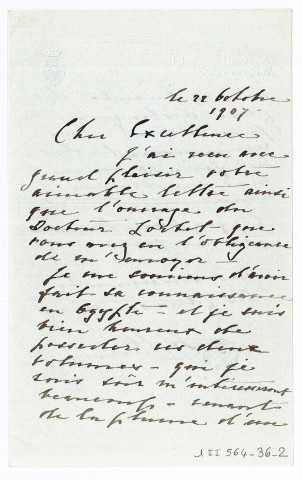 le 22 Octobre
1907
Cher Excellence
J'ai reçu avec
grand plaisir votre
aimable lettre ainsi
que l'ouvrage du
Docteur Lortet que
vous avez eu l'obligeance
de m'envoyer –
Je me souviens d'avoir
fait sa connaissance
en Egypte – et je suis
bien heureux de
posseder ces deux
volumes – que je
suis sûr m'intéresseront
beaucoup – venant
de la plume d'un
1 II 564-36-2